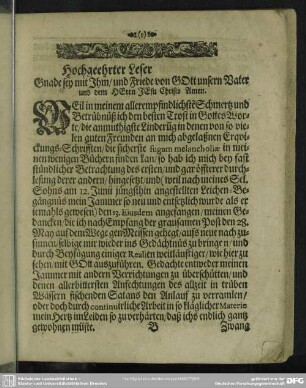 (1)
Hochgeehrter Leser
Gnade sey mit Ihm/ und Friede von GOtt unsern Vater
und dem HErrn JEsu Christo Amen.
WEil in meinem allerempfindlichste Schmertz und
Betrübnüß ich den besten Trost in GOttes Wor-
te/ die anmuthigste Linderūg in denen von so vie-
len guten Freunden an mich abgelaßnen Erqvi-
ckungs-Schrifften/ die sicherste fugam melancholiæ in mei-
nen wenigen Büchern finden kan/ so hab ich mich bey fast
stündlicher Betrachtung des ersten/ und gar öffterer durch-
lesung derer andern/ hingesetzt/ und/ weil nach meines Sel.
Sohns am 12. Junii jüngsthin angestellten Leichen-Be-
gängnüs mein Jammer so neu und entsetzlich wurde als er
iemahls gewesen/ den 13. Eiusdem angefangen/ meinen Ge-
dancken/ die ich nach Empfang der grausamen Post den 28.
May auf dem Wege gen Meissen gehegt/ aufs neue nach zu-
sinnen/ selbige mir wieder ins Gedächtnüs zu bringen/ und
durch Beyfügung einiger Realien weitläufftiger/ wie hier zu
sehen/ mit GOtt auszuführen. Gedachte entweder meinen
Jammer mit andern Verrichtungen zu überschütten/ und
denen allerbittersten Anfechtungen des allzeit in trüben
Wassern fischenden Satans den Anlauf zu verramlen/
oder doch durch continuirliche Arbeit in so kläglicher Materie
mein Hertz im Leiden so zu verhärten/ daß ichs endlich gantz
gewohnen müste.
B Zwang